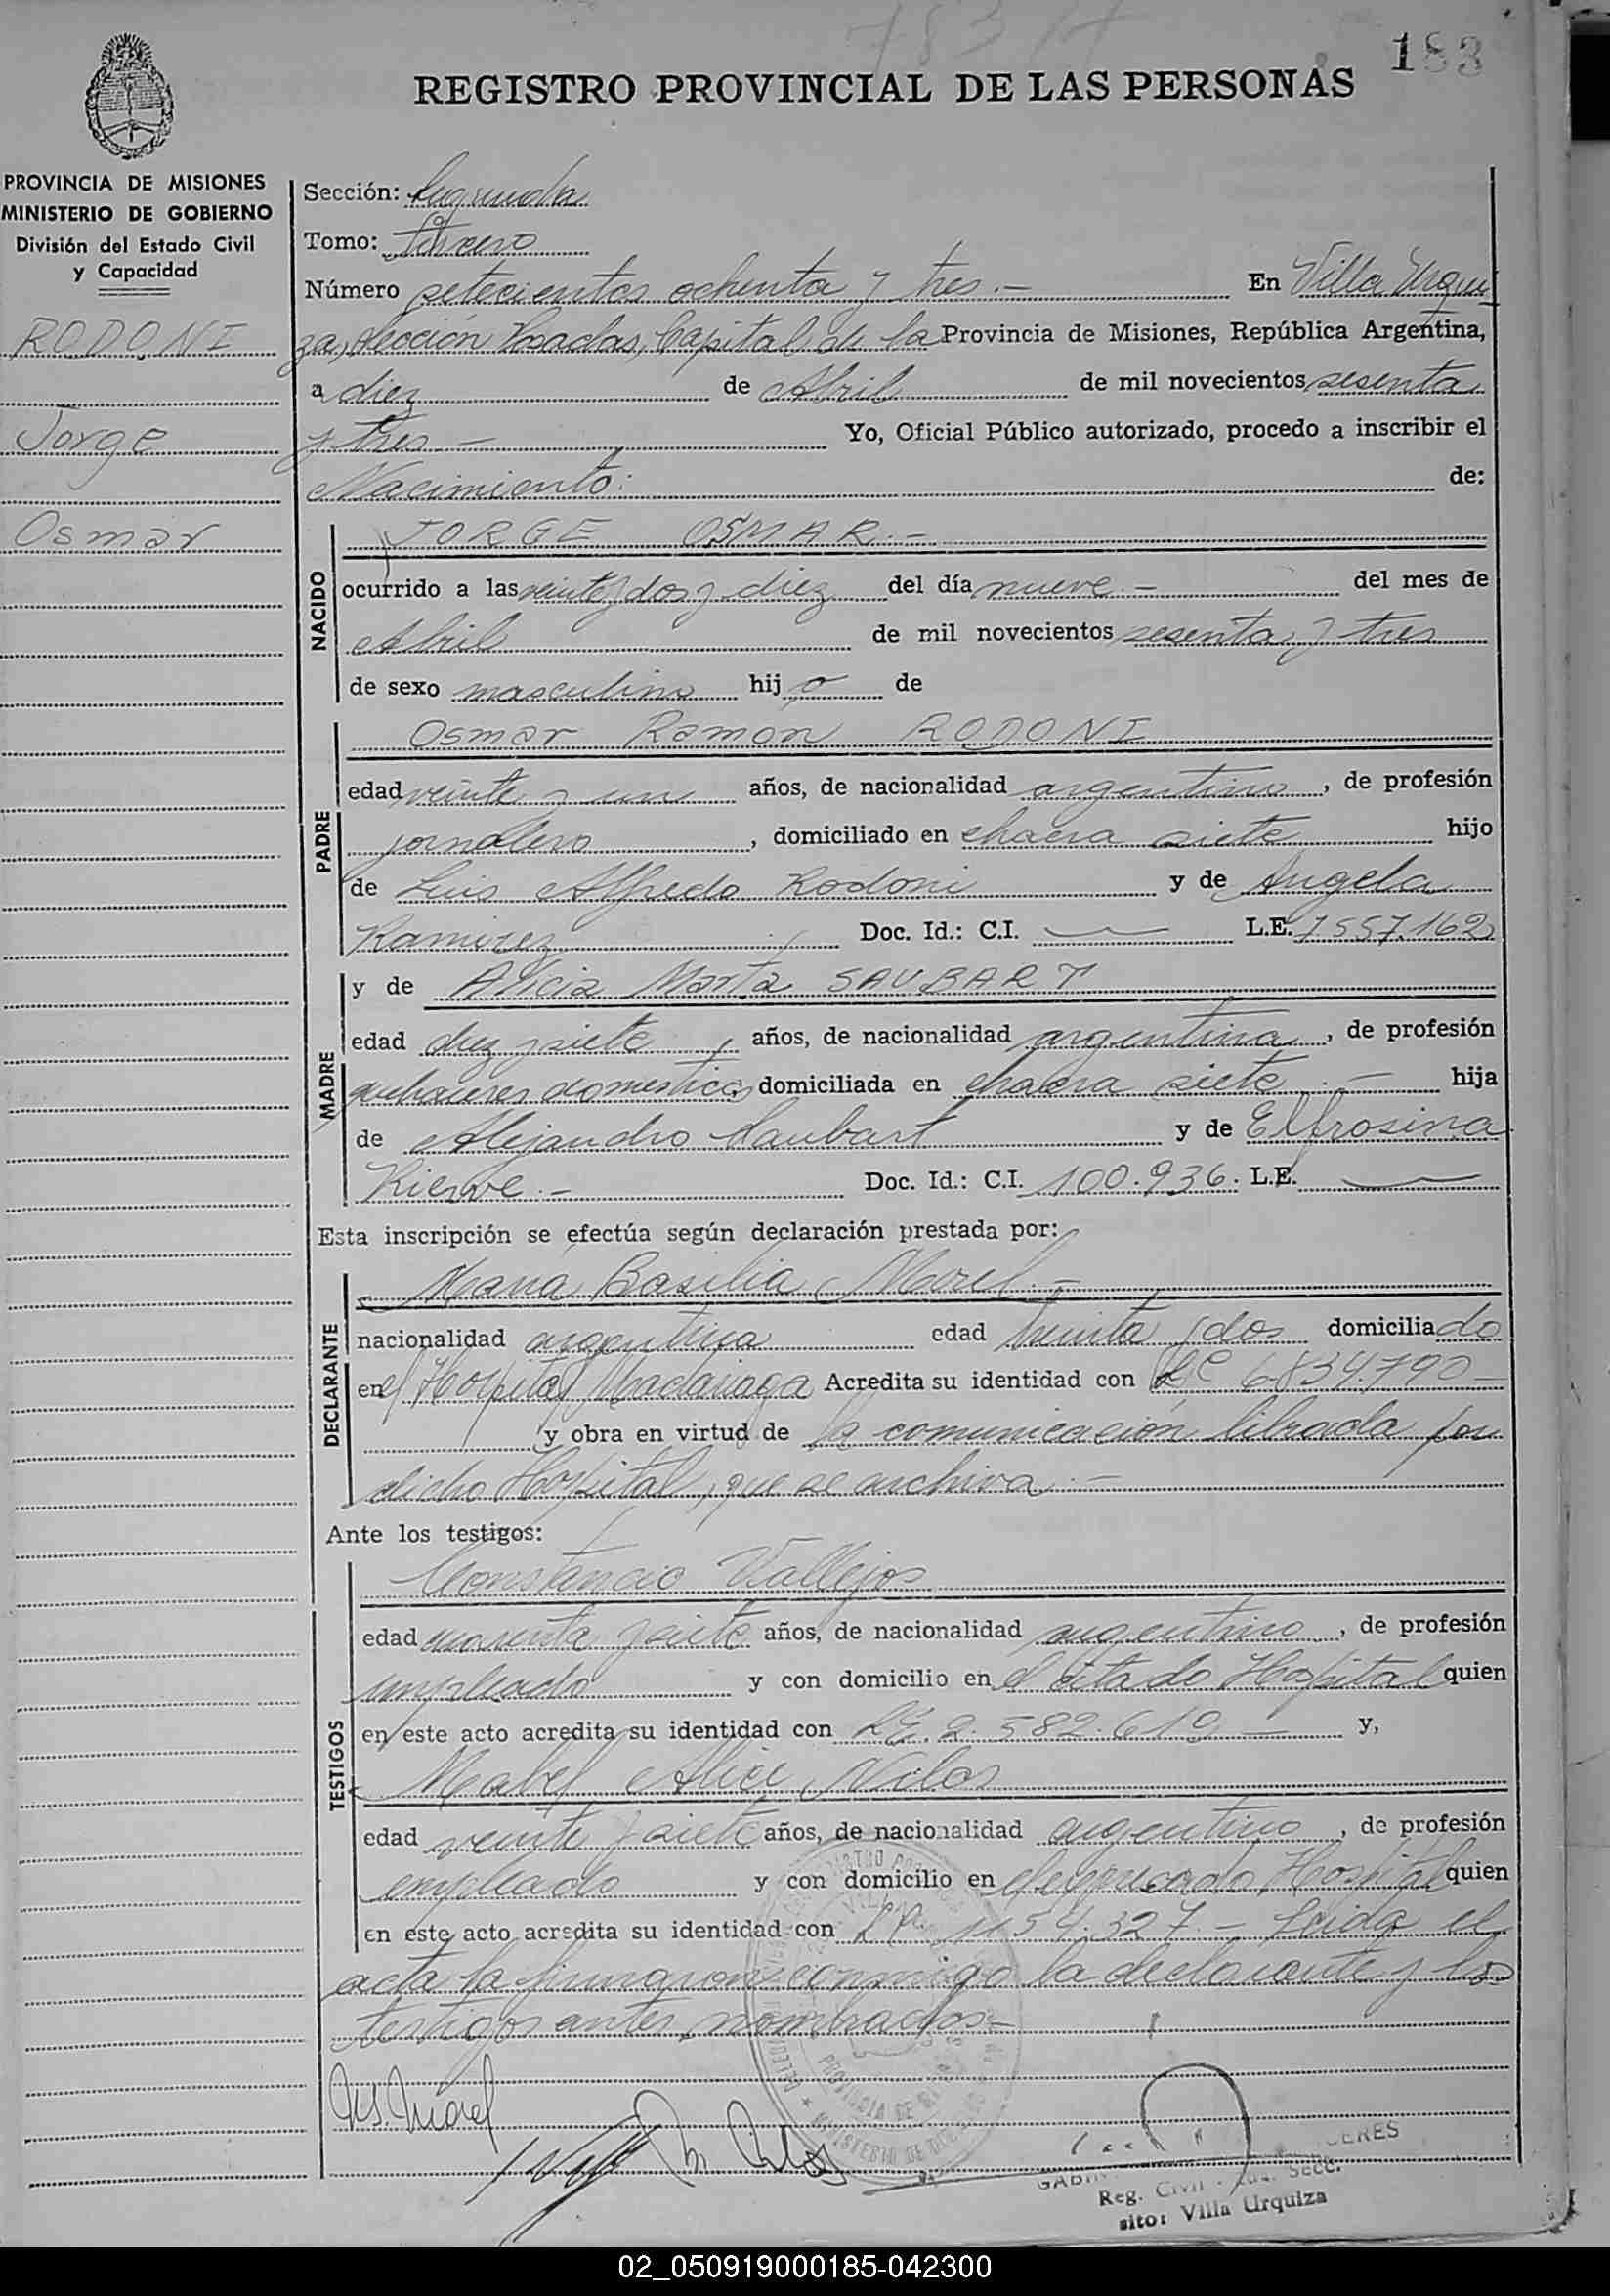 783 17
183
REGISTRO PROVINCIAL DE LAS PERSONAS
PROVINCIA DE MISIONES
MINISTERIO DE GOBIERNO
División del Estado Civil
y Capacidad
RODONI
Jorge
Osmar
Sección: Segunda
Tomo: Tercero
Número setecientos ochenta y tres.- En Villa Urqui
za, sección Posadas, Capital de la Provincia de Misiones, República Argentina,
a diez de Abril de mil novecientos sesenta
y tres - Yo, Oficial Público autorizado, procedo a inscribir el
Nacimiento: de:
NACIDO
JORGE OSMAR.-
ocurrido a las veinte y dos y diez del día nueve.- del mes de
Abril de mil novecientos sesenta y tres
de sexo masculino hijo de
PADRE
Osmar Ramon RODONI
edad veinte y un años, de nacionalidad argentino, de profesión
jornalero, domiciliado en chacra siete hijo
de Luis Alfredo Rodoni y de Angela
Ramirez Doc. Id.: C.I. — L.E. 7557.162
MADRE
y de Alicia Marta SAUBART
edad diez y siete años, de nacionalidad argentina, de profesión
quehaceres domesticos domiciliada en chacra siete.- hija
de Alejandro Saubart y de Elfrosina
Doc. Id.: C.I. 100.936. L.E. —
Esta inscripción se efectúa según declaración prestada por:
DECLARANTE
Maria Basilia Morel.-
nacionalidad argentina edad treinta y dos domiciliado
en el Hospital Madariaga Acredita su identidad con LC 6.834.790 -
y obra en virtud de la comunicación librada por
dicho Hospital, que se archiva.-
Ante los testigos:
TESTIGOS
Constancio Vallejos
edad cuarenta y siete años, de nacionalidad argentino, de profesión
empleado y con domicilio en el citado Hospital quien
en este acto acredita su identidad con L.E. 2.582.610 - y,
Mabel Alici
edad veinte y siete años, de nacionalidad argentino, de profesión
empleado y con domicilio en el expresado Hospital quien
en este acto acredita su identidad con 1154.327.- Leida el
acta la firmaron conmigo la declarante y los
testigos antes nombrados-
Morel
PROVINCIA DE
MINISTERIO DE
Reg. Civil
sito: Villa Urquiza
02_050919000185-042300